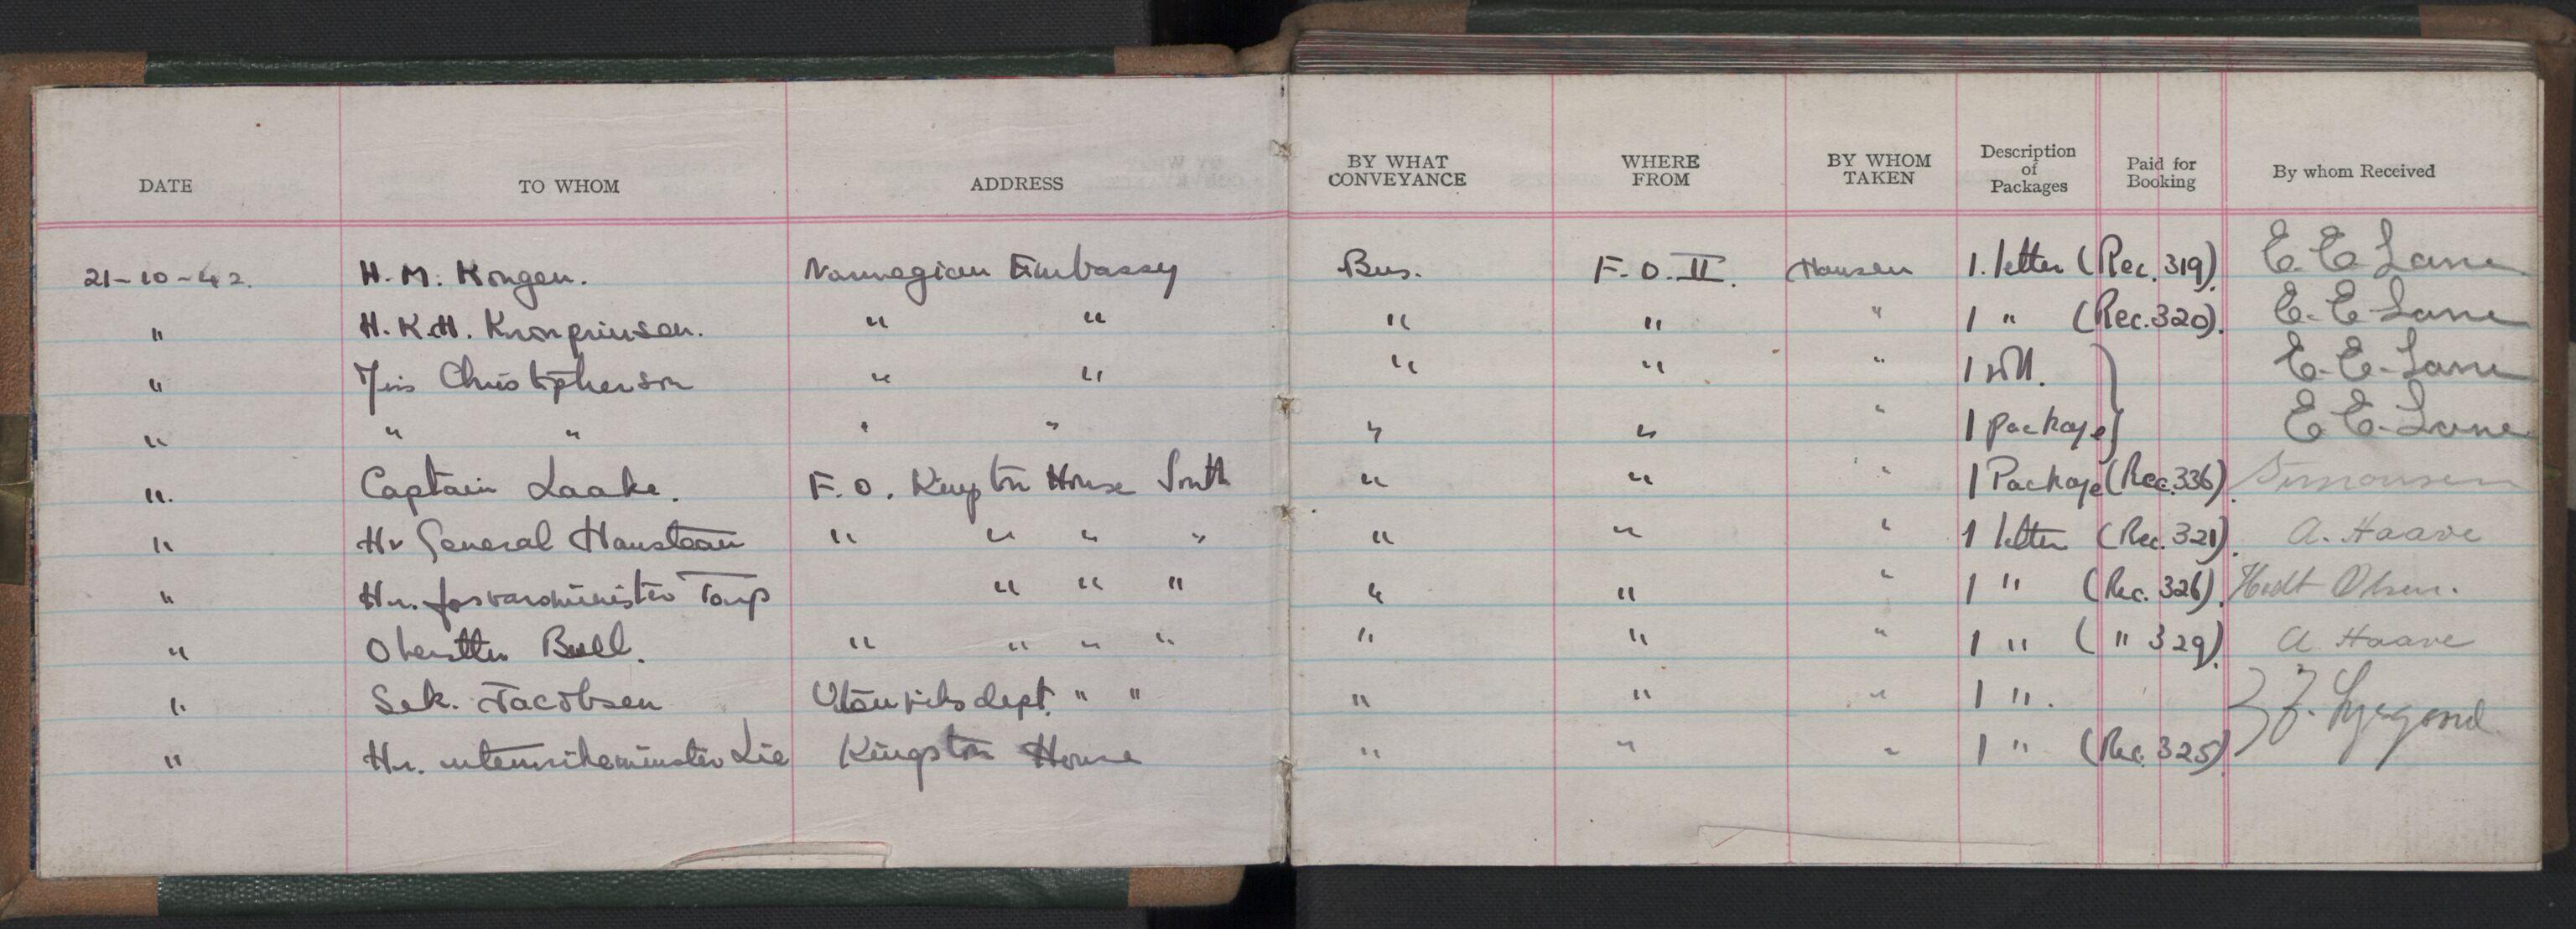 DATE TO WHOM ADDRESS BY WHAT CONVEYANCE WHERE FROM BY WHOM TAKEN Description of Packages Paid for Booking By whom Received
21-10-42. H. M. Kongen. Norwegian Embassy Bus. F. O. II. Hansen 1. letter (Rec. 319). E. E. Lane
" H. K. H. Kronprinsen. " " " " " 1 " (Rec. 320). E. E. Lane
" Miss Christopherson " " " " " 1 roll. } E. E. Lane
" " " " " " " " 1 package } E. E. Lane
" Captain Laake. F. O. Kingston House South " " " 1 Package (Rec. 336). Simonsen
" Hr General Hansteen " " " " " " " 1 letter (Rec. 321). A. Haave
" Hr. forsvarsminister Torp " " " " " " 1 " (Rec. 326). Olsen.
" Oberstltn Bull. " " " " " " " 1 " ( " 329). A Haave
" Sek. Jacobsen Utenriksdept. " " " " " 1 ".
" Hr. utenriksminister Lie Kingston House " " " 1 " (Rec. 325).